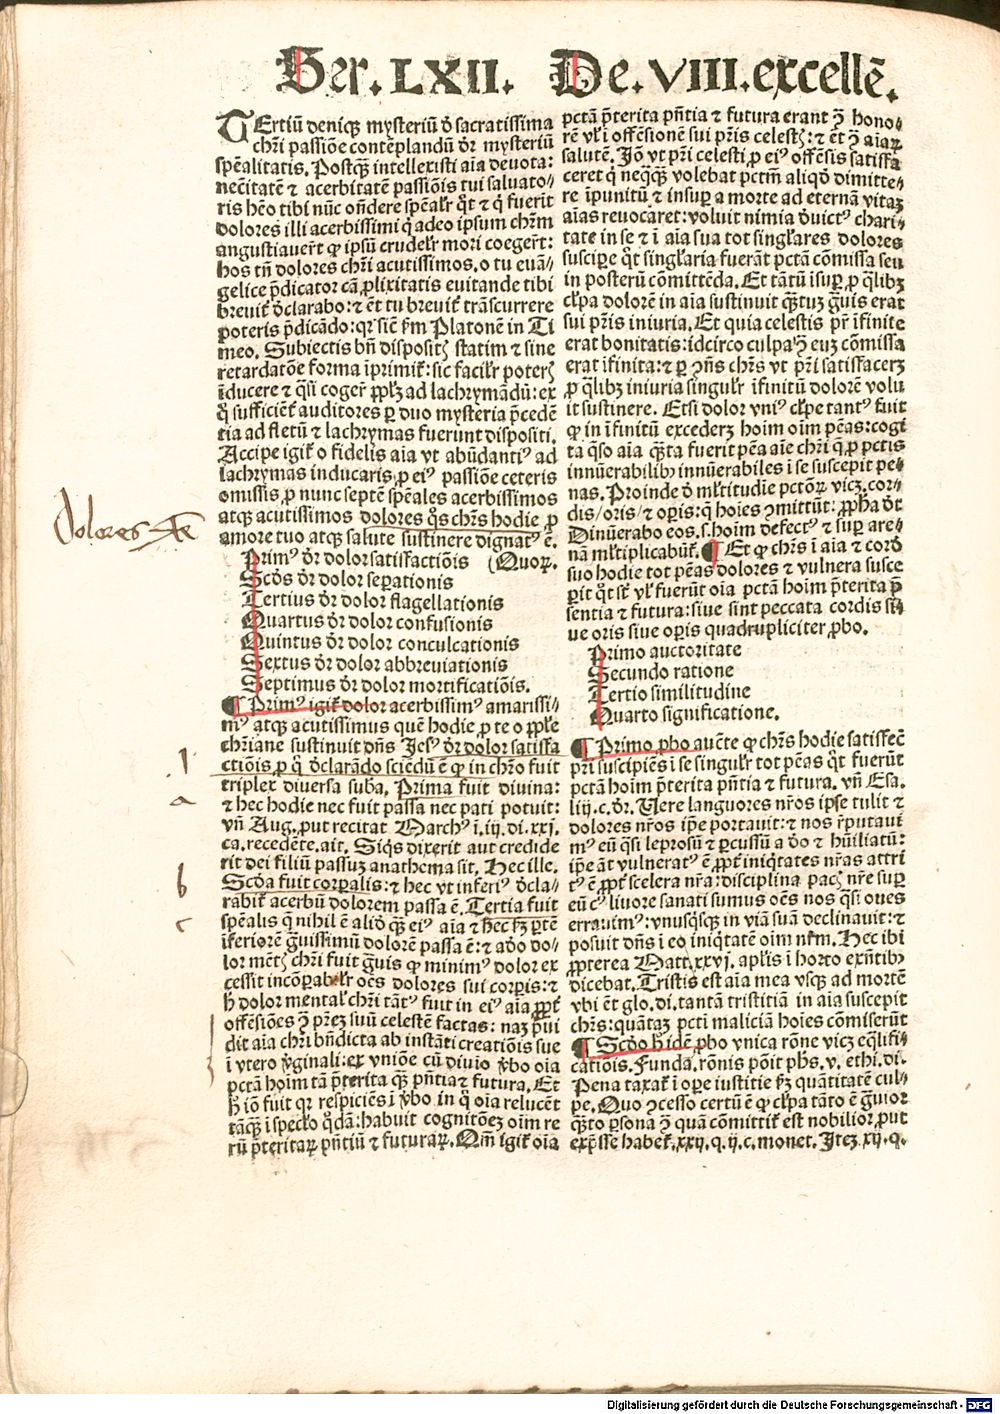 Ser. LXII. De. VIII. excellẽ.
TErtiũ deniqꝫ mysteriũ ð sacratissima
chr̃i passiõe contẽplandũ ðr mysteriũ
spẽalitatis. Postqꝫ̃ intellexisti aĩa deuota:
necc̃itatẽ ⁊ acerbitatẽ passiõis tui saluato⸗
ris hẽo tibi nũc oñdere spẽalr̃ q̃t ⁊ q̃ fuerit
dolores illi acerbissimi q̃ adeo ipsum chr̃m
angustiauer̃t ꝙ ipsũ crudelr̃ mori coeger̃t:
hos tñ dolores chr̃i acutissimos. o tu euã⸗
gelice p̃dicator cã ꝓlixitatis euitande tibi
breuiť ðclarabo: ⁊ ẽt tu breuiť trãscurrere
poteris p̃dicãdo: qꝛ sic̃ ẜm Platonẽ in Ti
meo. Subiectis bñ dispositꝭ statim ⁊ sine
retardatõe forma ĩprimiť: sic facilr̃ poterꝭ
ĩducere ⁊ q̃si coger̃ pp̃lꝫ ad lachrymãdũ: ex
q̃ sufficiẽť auditores ꝑ duo mysteria p̃cedẽ
tia ad fletũ ⁊ lachrymas fuerunt dispositi.
Accipe igiť o fidelis aĩa vt abũdantiꝰ ad
lachrymas inducaris, ꝓ eiꝰ passiõe ceteris
omissis, ꝓ nunc septẽ spẽales acerbissimos
atqꝫ acutissimos dolores q̃s chr̃s hodie ꝓ
amore tuo atqꝫ salute sustinere dignatꝰ ẽ.
Primꝰ ðr dolor satisfactiõis (Quoꝝ.
Scðs ðr dolor seperationis
Tertius ðr dolor flagellationis
Quartus ðr dolor confusionis
Quintus ðr dolor conculcationis
Sextus ðr dolor abbreuiationis
Septimus ðr dolor mortificatiõis.
¶ Primꝰ igiť dolor acerbissimꝰ amarissi⸗
mꝰ atqꝫ acutissimus quẽ hodie ꝓ te o pp̃le
chr̃iane sustinuit dñs Jesꝰ ðr dolor satisfa
ctiõis, ꝓ q̃ ðclarãdo sciẽdũ ẽ ꝙ in chr̃o fuit
triplex diuersa suba. Prima fuit diuina:
⁊ hec hodie nec fuit passa nec pati potuit:
vñ Aug. put recitat Marchꝰ ĩ. iij. di. xxj.
ca. recedẽte. ait. Siqs dixerit aut credide
rit dei filiũ passuꝫ anathema sit. Hec ille.
Scða fuit corꝑalis: ⁊ hec vt inferiꝰ ðcla⸗
rabiť acerbũ dolorem passa ẽ. Tertia fuit
spẽalis q̃ nihil ẽ alið qꝫ̃ eiꝰ aĩa ⁊ hec ẜm ꝑtẽ
ĩferiorẽ g̃uissimũ dolorẽ passa ẽ: ⁊ aðo do⸗
lor mẽtꝭ chr̃i fuit g̃uis ꝙ minimꝰ dolor ex
cessit incõparabilr̃ oẽs dolores sui corꝑis: ⁊
h̃ dolor mentalr̃ chr̃i tãtꝰ fuit in eiꝰ aĩa ꝓpť
offẽsiões ꝯ̃ pr̃eꝫ suũ celestẽ factas: naꝫ p̃ui
dit aĩa chr̃i bñdicta ab instãti creatiõis sue
ĩ vtero ṽginali: ex vniõe cũ diuĩo ṽbo oĩa
pctã hoĩm tã p̃terita qꝫ̃ p̃ñtia ⁊ futura. Et
h̃ iõ fuit qꝛ respiciẽs ĩ ṽbo in q̃ oĩa relucẽt
tãqꝫ̃ ĩ specło q̃dã: habuit cognitõeꝫ oĩm re
rũ p̃teritaꝝ p̃ñtiũ ⁊ futuraꝝ. Qm̃ igiť oĩa
pctã p̃terita p̃ñtia ⁊ futura erant ꝯ̃ hono⸗
rẽ vl̃ ĩ offẽsionẽ sui pr̃is celestꝭ: ⁊ ẽt ꝯ̃ aĩaꝝ
salutẽ. Jõ vt pr̃i celesti, ꝓ eiꝰ offẽsis satiffa
ceret q̃ neq̃qꝫ̃ volebat pctm̃ aliqð dimitte⸗
re ĩpunitũ ⁊ insuꝑ a morte ad eternã vitaꝫ
aĩas reuocaret: voluit nimia ðuictꝰ chari⸗
tate in se ⁊ ĩ aĩa sua tot singłares dolores
suscipe q̃t singłaria fuerãt pctã cõmissa seu
in posterũ cõmittẽda. Et tãtũ ĩsuꝑ, ꝓ q̃libꝫ
cłpa dolorẽ in aĩa sustinuit qꝫ̃tuꝫ g̃uis erat
sui pr̃is iniuria. Et quia celestis pr̃ ĩfinite
erat bonitatis: idcirco culpa ꝯ̃ euꝫ cõmissa
erat ĩfinita: ⁊ ꝑ ꝯñs chr̃s vt pr̃i satisfacerꝫ
ꝓ q̃libꝫ iniuria singulr̃ ĩfinitũ dolorẽ volu
it sustinere. Etsi dolor vniꝰ cłpe tantꝰ fuit
ꝙ in ĩfinitũ excederꝫ hoĩm oĩm pẽas: cogi
ta q̃so aĩa qꝫ̃ta fuerit pẽa aĩe chr̃i q̃, ꝓ pctis
innũerabilibꝰ innũerabiles ĩ se suscepit pe⸗
nas. Proinde ð mľtitudĩe pctõꝝ viꝫ. cor⸗
dis/oris/⁊ oꝑis: q̃ hoĩes ꝯmittũt: ꝓpħa ðt
Dinũerabo eos. s. hoĩm defectꝰ ⁊ suꝑ are⸗
nã mľtiplicabũť. ¶ Et ꝙ chr̃s ĩ aĩa ⁊ corð
suo hodie tot pẽas dolores ⁊ vulnera susce
ꝑit q̃t sť vl̃ fuerũt oĩa pctã hoĩm p̃terita p̃
sentia ⁊ futura: siue sint peccata cordis si⸗
ue oris siue oꝑis quadrupliciter ꝓbo.
Primo auctoritate
Secundo ratione
Tertio similitudine
Quarto significatione.
¶ Primo ꝓbo auc̃te ꝙ chr̃s hodie satisfec̃
pr̃i suscipiẽs ĩ se singulr̃ tot pẽas q̃t fuerũt
pctã hoĩm p̃terita p̃ñtia ⁊ futura. vñ Esa.
liij. c. ðr. Uere languores nr̃os ipse tulit ⁊
dolores nr̃os ip̃e portauit: ⁊ nos r̃putaui
mꝰ eũ q̃si leprosũ ⁊ ꝑcussũ a ðo ⁊ hũiliatũ:
ip̃e ãt vulneratꝰ ẽ ꝓpť iniq̃tates nr̃as attri
tꝰ ẽ ꝓpť scelera nr̃a: disciplina pacꝭ nr̃e suꝑ
eũ cꝰ liuore sanati sumus oẽs nos q̃si oues
errauimꝰ: vnusq̃sqꝫ in viã suã declinauit: ⁊
posuit dñs ĩ eo iniq̃tatẽ oĩm nr̃m. Hec ibi
ꝓpterea Matt. xxvj. aplis ĩ horto exñtibꝰ
dicebat. Tristis est aĩa mea vsqꝫ ad mortẽ
vbi ẽt glo. di. tantã tristitiã in aĩa suscepit
chr̃s: quãtaꝫ pcti maliciã hoĩes cõmiserũt
¶ Scðo h̃ idẽ ꝓbo vnica rõne viꝫ eq̃lifi⸗
catiõis. Funda. rõnis põit phs. v. ethi. di.
Pena taxať ĩ oꝑe iustitie ẜm quãtitatẽ cul⸗
pe. Quo ꝯcesso certũ ẽ ꝙ cłpa tãto ẽ g̃uior
qꝫ̃to ꝑsona ꝯ̃ quã cõmittiť est nobilior, put
exp̃sse habeť. xxij. q. ij. c. monet. Jteꝫ xij. q.
dolores
1
a
b
c
Digitalisierung gefördert durch die Deutsche Forschungsgemeinschaft - DFG